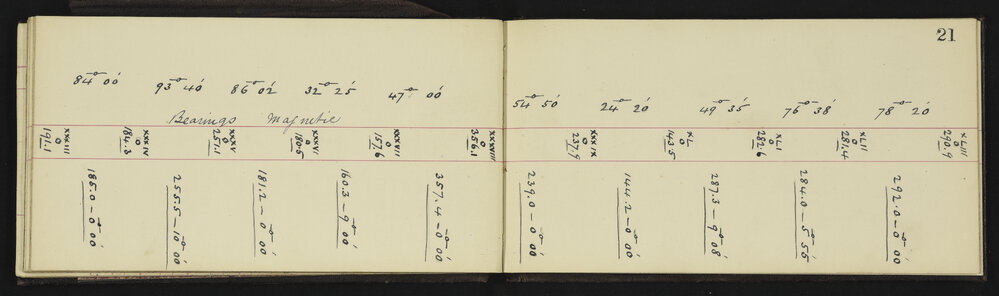 21
84° 00' 93° 40' 86° 02' 32° 25' 47° 00'
54° 50' 24° 20' 49° 35' 76° 38' 78° 20'
Bearings Magnetic
XXXIII 0 191.1
XXXIV 0 184.3
XXXV 0 251.1
XXXVI 0 180.5
XXXVII 0 157.6
XXXVIII 0 356.1
XXXIX 0 237.9
XL 0 143.5
XLI 0 282.6
XLII 0 281.4
XLIII 0 290.9
185.0 — 0° 00'
255.5 — 10° 00'
181.2 — 0° 00'
160.3 — 9° 00'
357.4 — 0° 00'
239.0 — 0° 00'
144.2 — 0° 00'
287.3 — 9° 08'
284.0 — 5° 55'
292.0 — 0° 00'